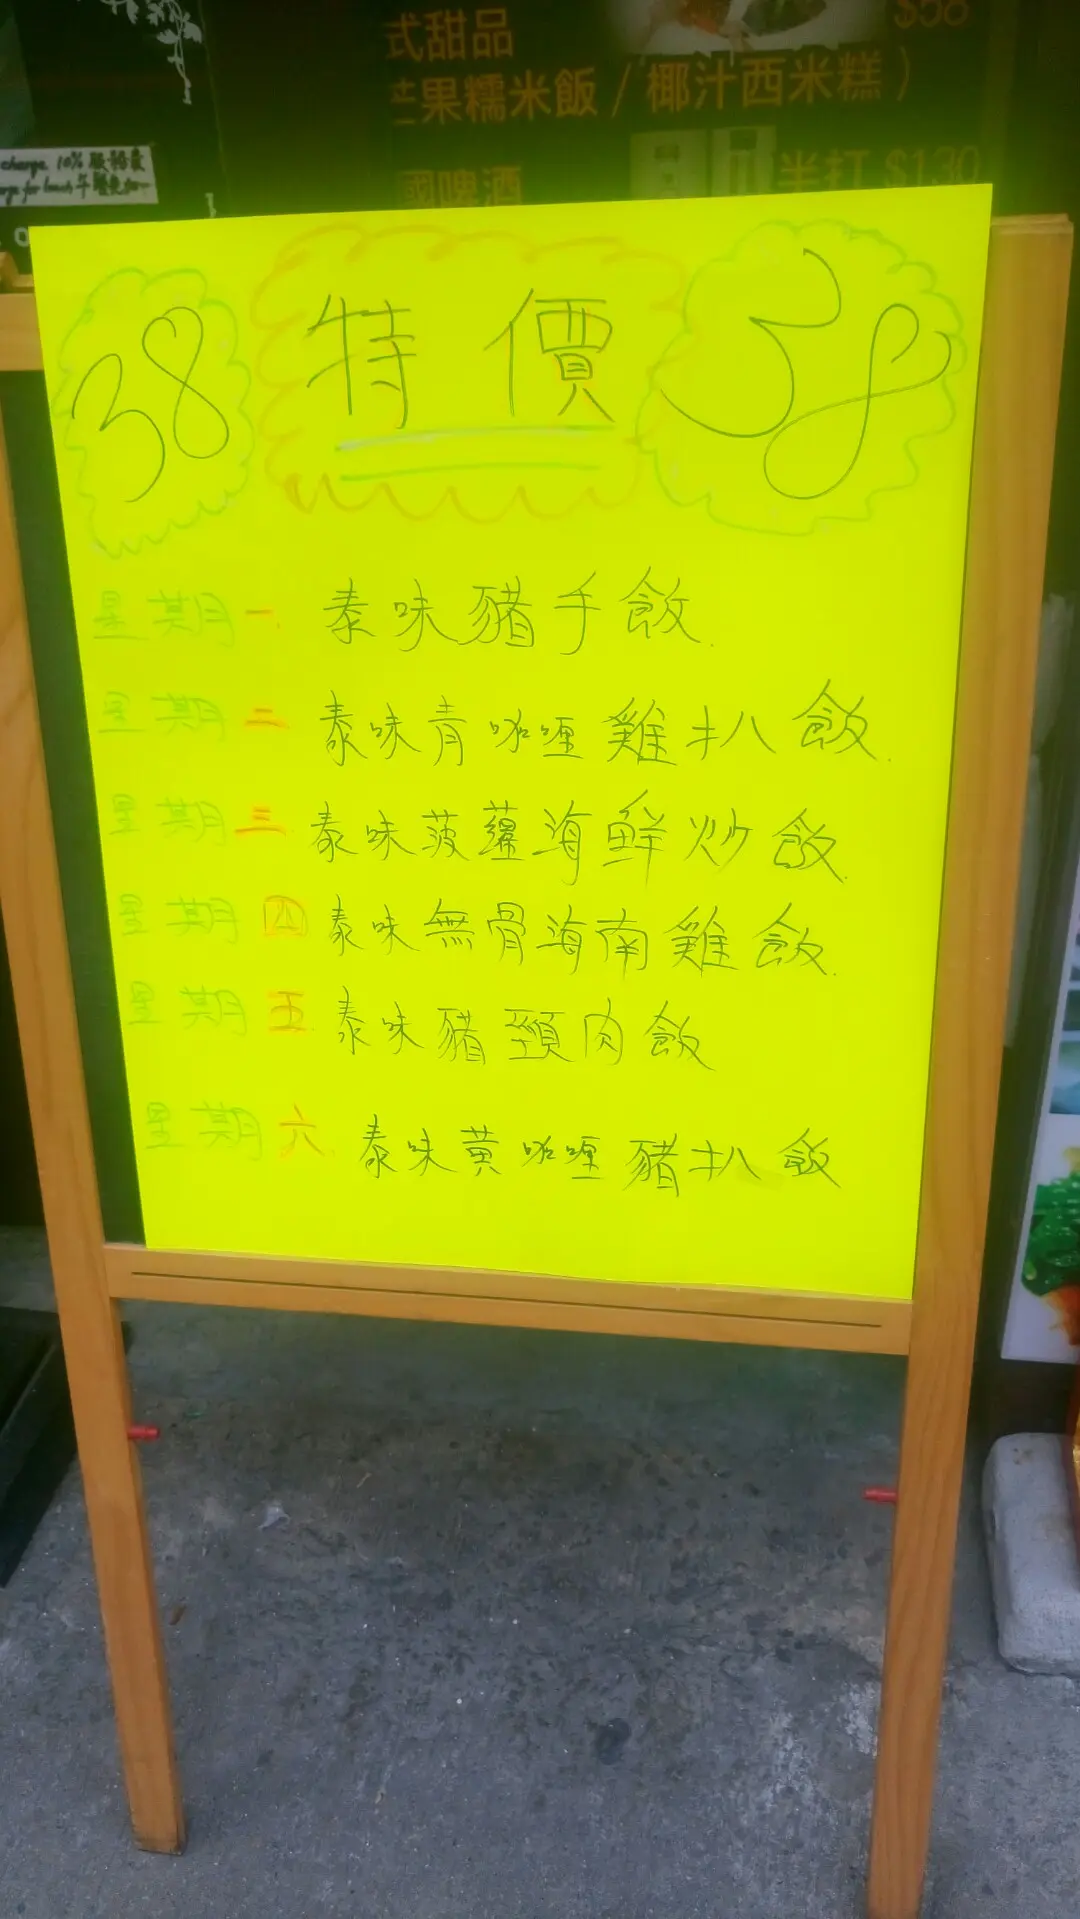 $58
式甜品
果糯米飯 / 椰汁西米糕)
charge 10% 服務費
國啤酒 半打 $130
38 特價 58
星期一 泰味豬手飯.
星期二 泰味青咖喱雞扒飯.
星期三 泰味菠蘿海鮮炒飯.
星期四 泰味無骨海南雞飯.
星期五 泰味豬頸肉飯
星期六 泰味黃咖喱豬扒飯